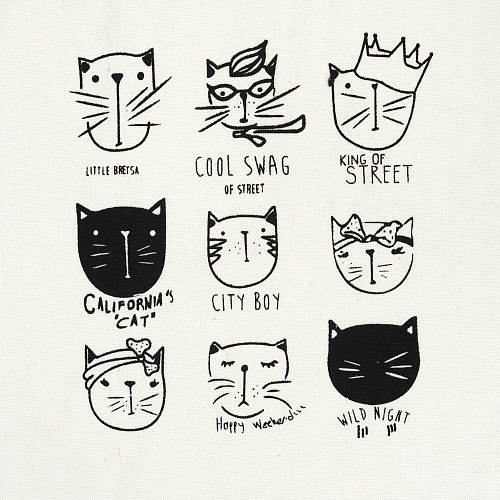 LITTLE BREYSA
COOL SWAG
OF STREET
KING OF
STREET
CALIFORNIA"S
"CAT"
CITY BOY
Happy Weekend
WILD NIGHT